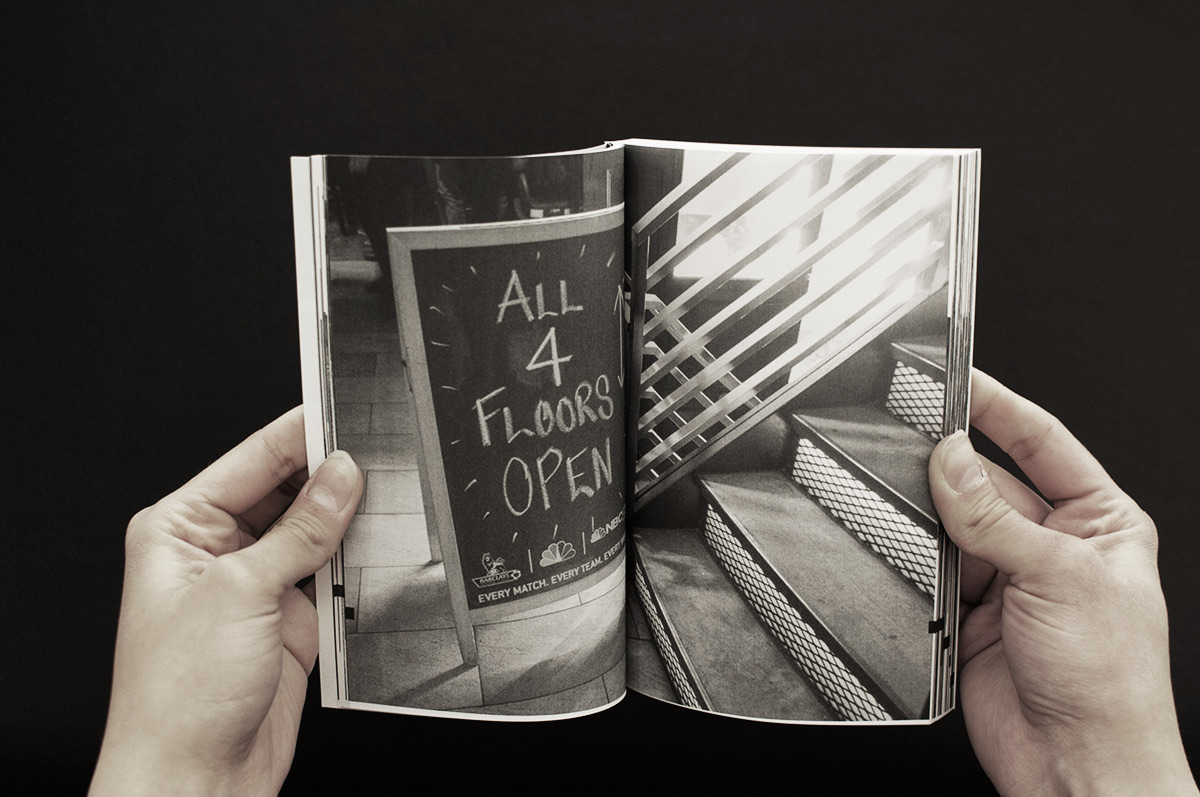 ALL
4
FLOORS
OPEN
BARCLAYS
NBC
EVERY MATCH. EVERY TEAM. EVERY